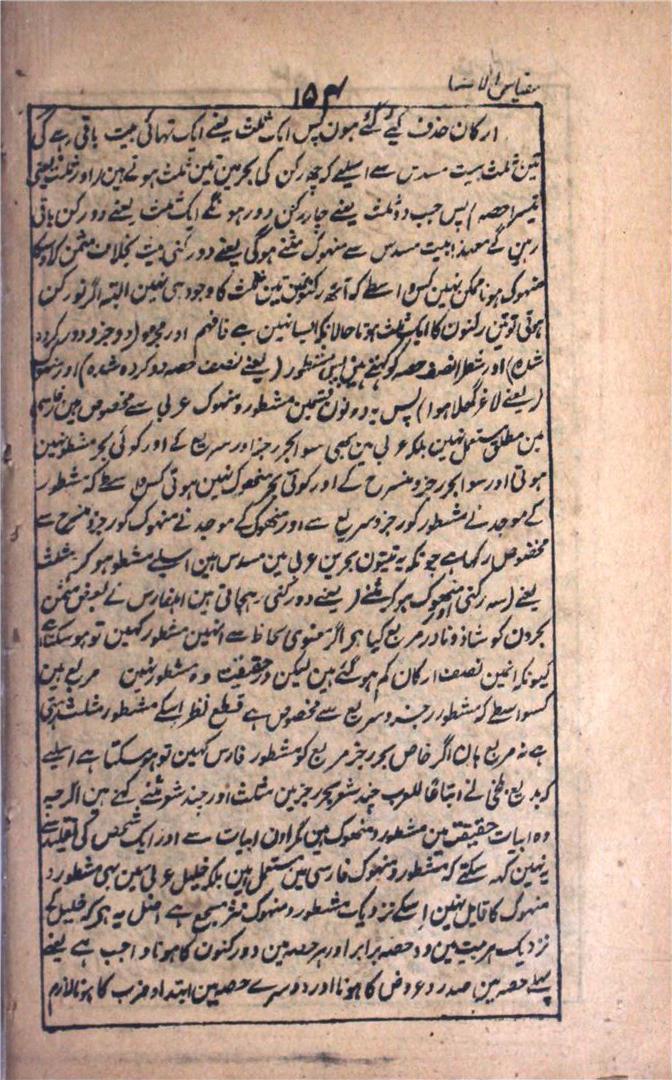 مقیاس الاشعار
۱۵۴
ارکان حذف کیے گئے ہون پس ایک ثلث یعنے ایک تہائی بیت باقی رہے گی
تین ثلث بیت مسدس سے اسلیے کہ چھ رکن کی بحرمین تین ثلث ہوتے ہین (اور ثلث یعنی
تیسرا حصہ) پس جب دو ثلث یعنے چار رکن دور ہونگے ایک ثلث یعنے دو رکن باقی
رہین گے معہذا بیت مسدس سے منہوک مثنے ہوگی یعنے دو رکنی بیت بخلاف مثمن کہ اوسکا
منہوک ہونا ممکن نہین کسواسطے کہ آٹھ رکنون مین تین ثلث کا وجود ہی نہین البتہ اگر نو رکن
ہوتی تو تین رکنون کا ایک ثلث ہوتا حالانکہ ایسا نہین ہے فافہم اور مجزو (دو جزو دور کردہ
شدہ) اور شطر نصف حصہ کو کہتے ہین پس مشطور (یعنے نصف حصہ دور کردہ شدہ) اور منہوک
(یعنے لاغر گھلا ہوا) پس یہ دونون قسمین مشطور و منہوک عربی سے مخصوص ہین فارسی
مین مطلق مستعمل نہین بلکہ عربی مین بھی سوا بحر رجز اور سریع کے اور کوئی بحر مشطور نہین
ہوتی اور سوا بحر رجز و منسرح کے اور کوئی بحر منہوک نہین ہوتی کسواسطے کہ مشطور
کے موجد نے مشطور کو رجز و سریع سے اور منہوک کے موجد نے منہوک کو رجز و منسرح سے
مخصوص رکھا ہے چونکہ یہ تینون بحرین عربی مین مسدس ہین اسلیے مشطور ہو کر مثلث
یعنے (سہ رکنی) اور منہوک ہو کر مثنے (یعنے دو رکنی) رہجاتی ہین اہل فارس نے بعض مثمن
بحرون کو شاذ و نادر مربع کیا ہے اگر معنوی لحاظ سے انہین مشطور کہین تو ہو سکتا ہے
کیونکہ انمین نصف ارکان کم ہو گئے ہین لیکن در حقیقت وہ مشطور نہین مربع ہین
کسواسطے کہ مشطور رجز و سریع سے مخصوص ہے قطع نظر اسکے مشطور مثلث ہوتی
ہے نہ مربع ہان اگر خاص بحر رجز مربع کو مشطور فارس کہین تو ہو سکتا ہے اسلیے
کہ بدیع بلخی نے اتباعًا للعرب چند شعر بحر رجز مین مثلث اور چند شعر مثنے کہے ہین اگرچہ
وہ ابیات حقیقت مین مشطور و منہوک ہین مگر اون ابیات سے اور ایک شخص کی تقلید سے
یہ نہین کہہ سکتے کہ مشطور و منہوک فارسی مین مستعمل ہین بلکہ خلیل عربی مین بھی مشطور و
منہوک کا قایل نہین اسکے نزدیک مشطور و منہوک نثر مسجع ہے اصل یہ ہی کہ خلیل کے
نزدیک ہر بیت مین دو حصہ برابر اور ہر حصہ مین دو رکنون کا ہونا واجب ہے یعنے
پہلے حصہ مین صدر و عروض کا ہونا اور دوسرے حصہ مین ابتدا و ضرب کا ہونا لازم